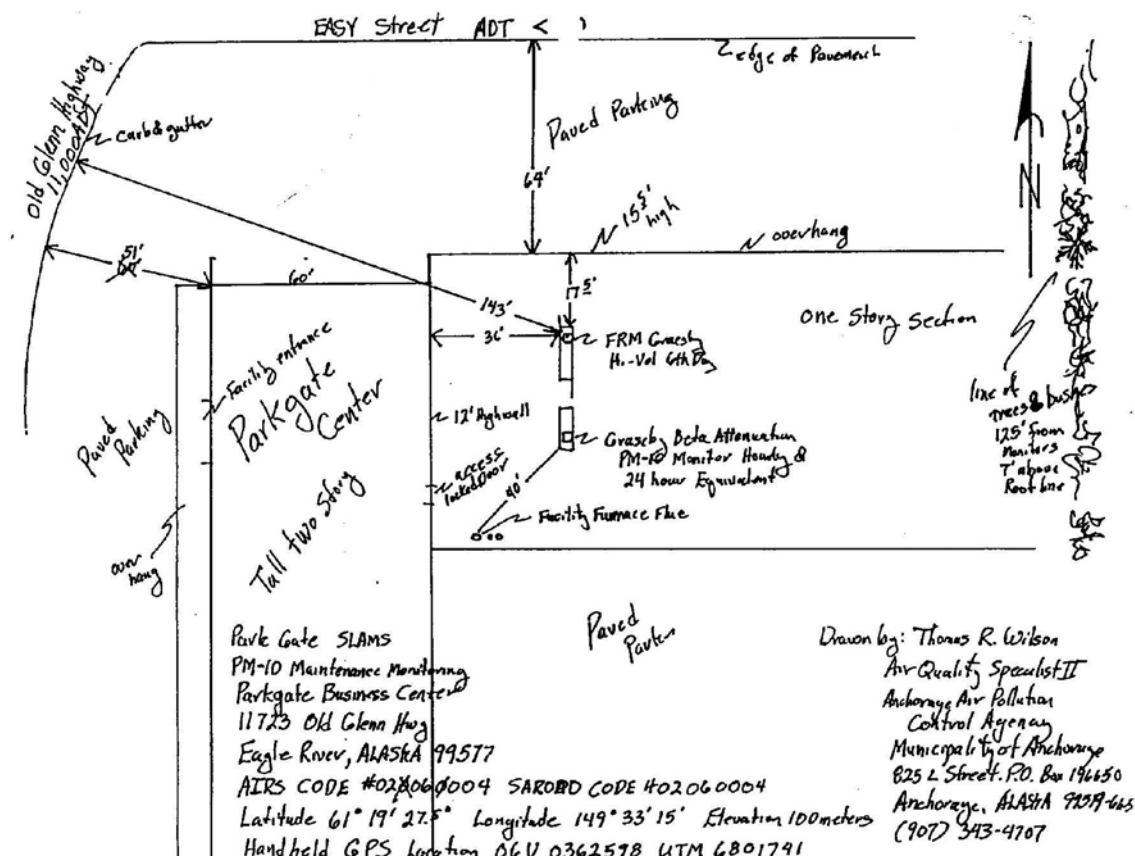 EASY Street ADT < )
edge of Pavement
Old Glenn Highway
11,000 ADT
curb & gutter
Paved Parking
64'
15⁵' high
overhang
N
51'
60'
143'
17⁵'
36'
one story section
FRM Graesby
Hi-Vol 6th Day
Facility entrance
Parkgate
Center
12' high wall
Graseby Beta Attenuation
PM-10 Monitor Hourly &
24 hour Equivalent
line of
trees & bushes
125' from
Monitors
7' above
Roof line
Paved
Parking
access
locked Door
40'
Facility Furnace Flue
over
hang
Tall two story
Paved
Park
Park Gate SLAMS
PM-10 Maintenance Monitoring
Parkgate Business Center
11723 Old Glenn Hwy
Eagle River, ALASKA 99577
AIRS CODE #020060004 SAROAD CODE #02060004
Latitude 61° 19' 27.5" Longitude 149° 33' 15' Elevation 100meters
Handheld GPS Location 06V 0362598 UTM 6801741
Drawn by: Thomas R. Wilson
Air Quality Specialist II
Anchorage Air Pollution
Control Agency
Municipality of Anchorage
825 L Street. P.O. Box 196650
Anchorage, ALASKA
(907) 343-4707